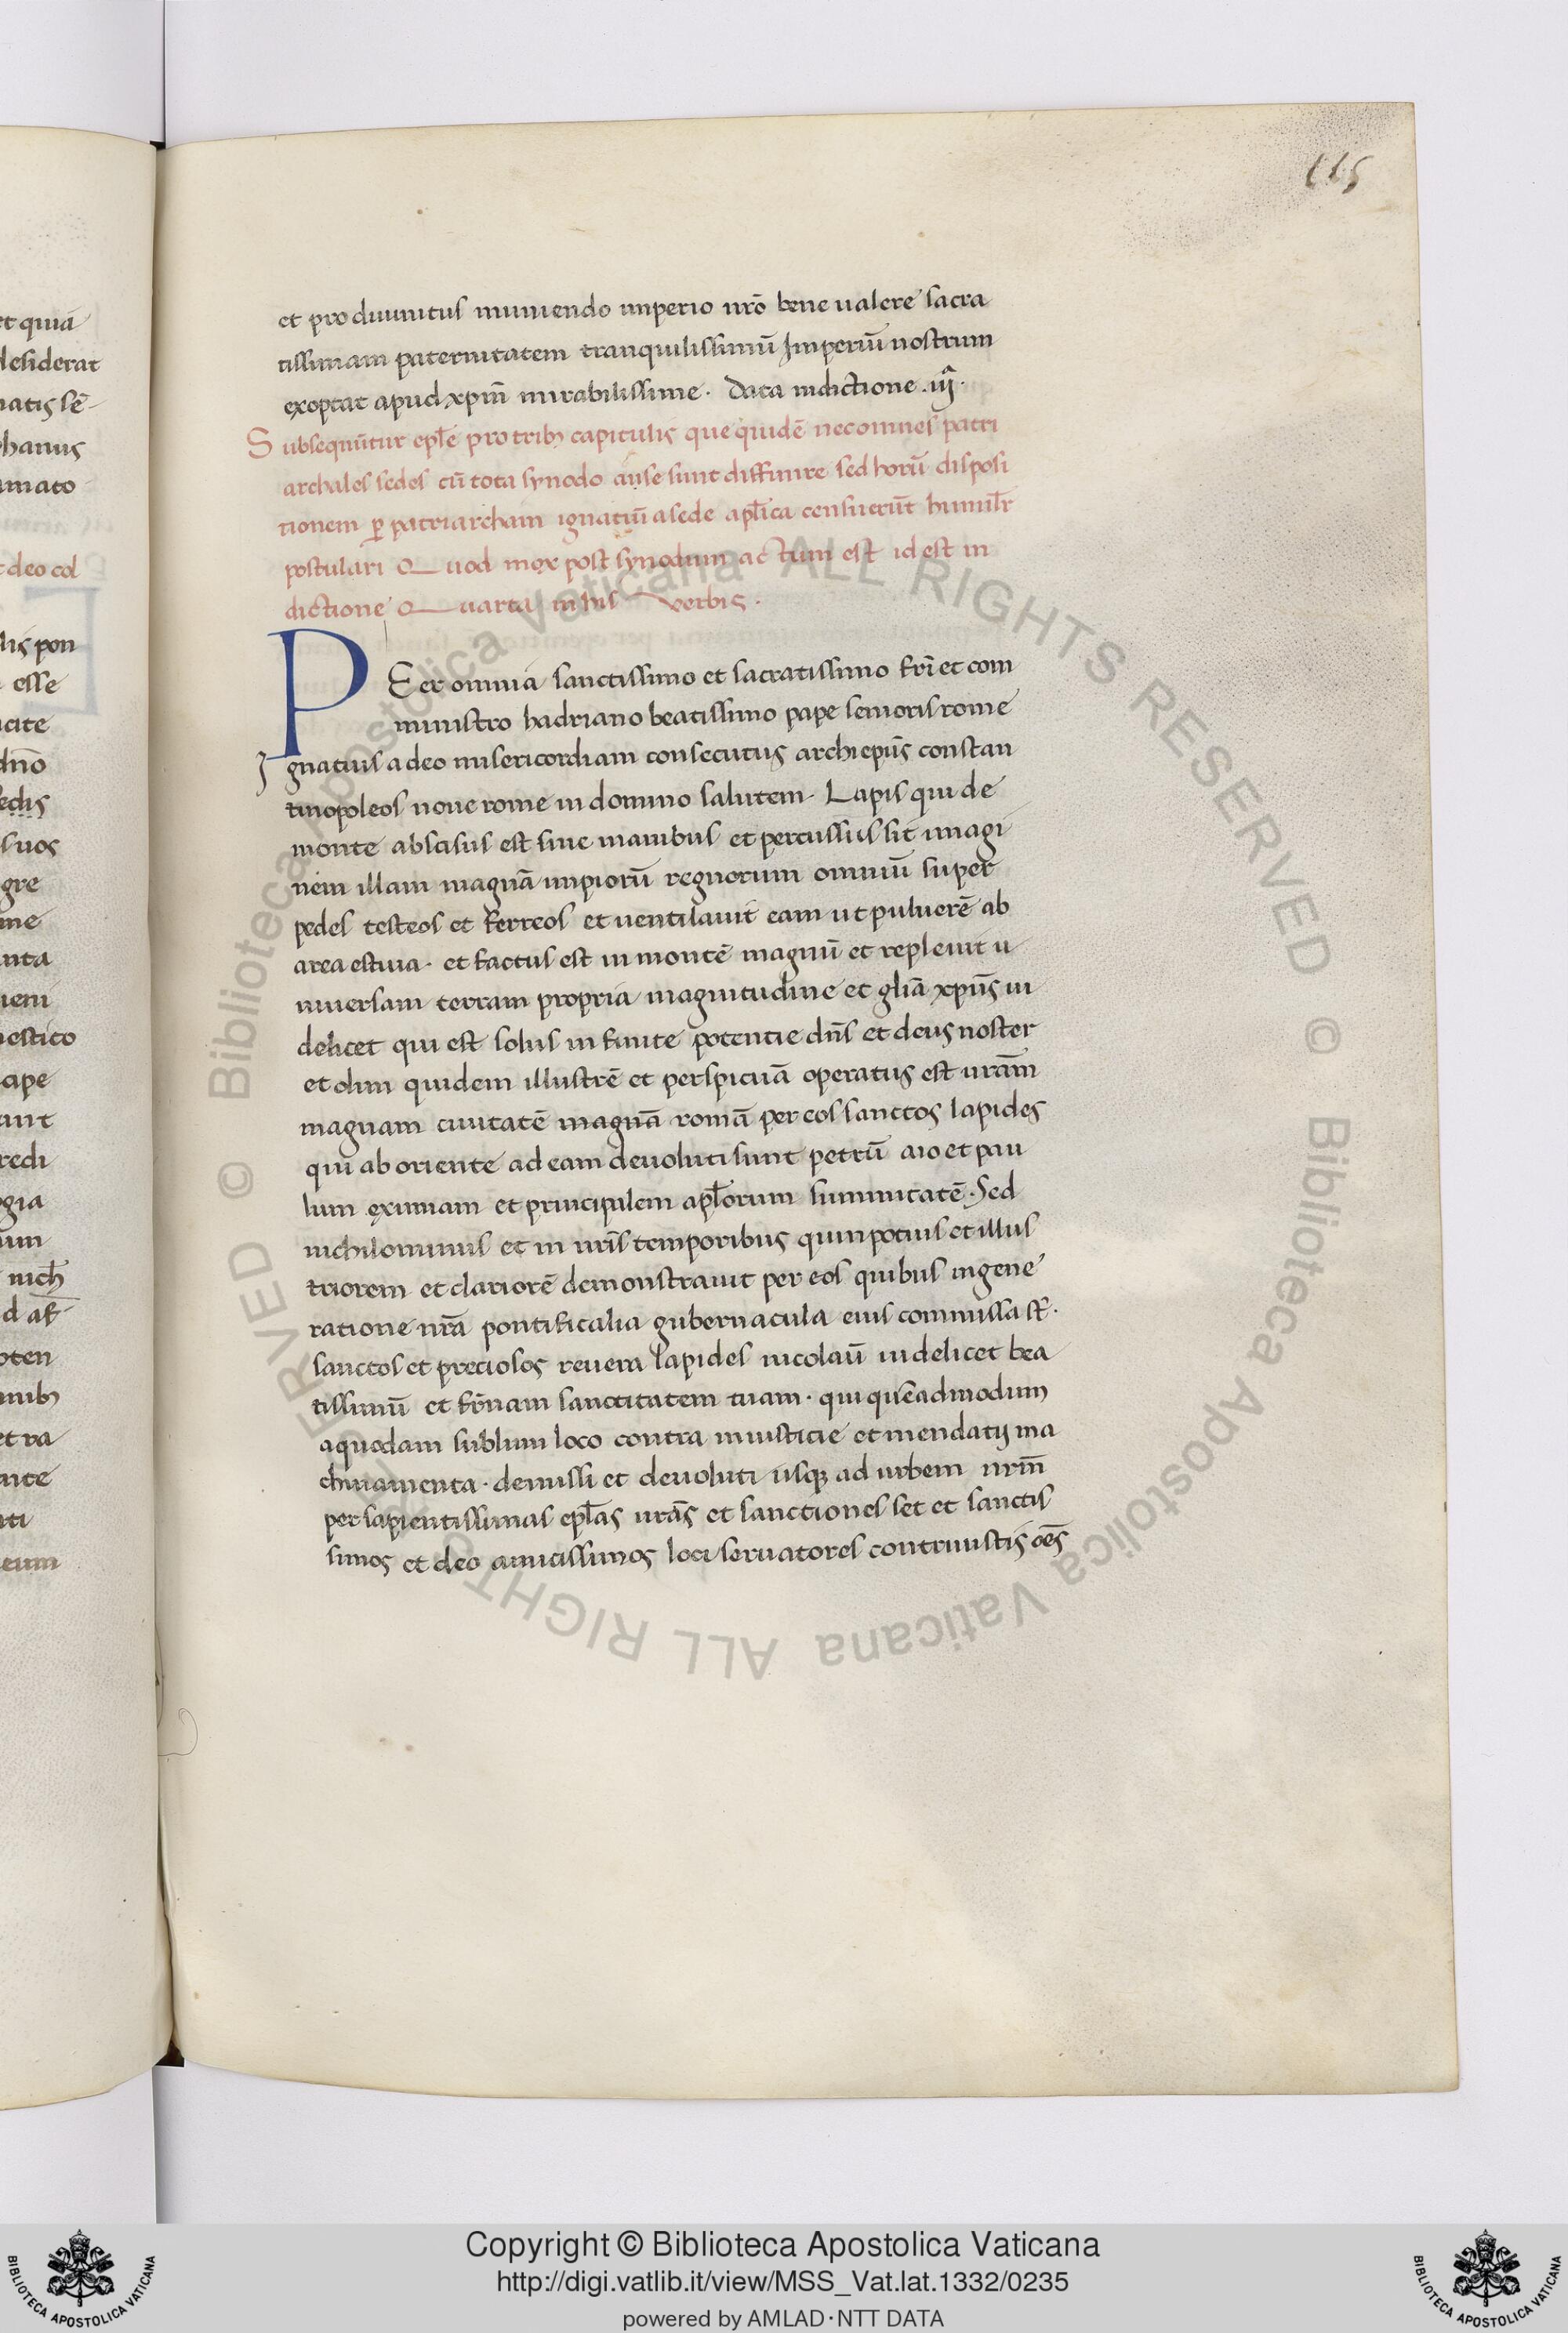 115
et pro diuinitus muniendo imperio nrō bene ualere sacra
tissimam paternitatem tranquilissimū Imperiū nostrum
exoptat apud xpm̄ mirabilissime. Data indictione .iij.
Subsequūtur epl̄e pro tribꝫ capitulis que quidē nec omnes patri
archales sedes cū tota synodo ause sunt diffinire sed horū disposi
tionem ꝑ patriarcham ignatiū a sede apl̄ica censuerūt humil̄r
postulari Quod mox post synodum actum est id est in
dictione Quarta in his verbis.
PEer omnia sanctissimo et sacratissimo fr̄i et com
ministro hadriano beatissimo pape senioris rome
Ignatius a deo misericordiam consecutus archiepūs constan
tinopoleos noue rome in domino salutem. Lapis qui de
monte abscisus est sine manibus et percussus sit imagi
nem illam magnā impiorū regnorum omniū super
pedes testeos et ferreos et uentilauit eam ut puluerē ab
area estiua. et factus est in montē magnū et repleuit u
niuersam terram propria magnitudine et gliā xpūs ui
delicet qui est solus infinite potentie dn̄s et deus noster
et olim quidem illustrē et perspicuā operatus est urām
magnam ciuitatē magnā romā per eos sanctos lapides
qui ab oriente ad eam deuoluti sunt petrū aio et pau
lum eximiam et principalem apl̄orum summitatē. Sed
nichilominus et in nrīs temporibus quin potius et illus
triorem et clariorē demonstrauit per eos quibus in gene
ratione nrā pontificalia gubernacula eius commissa st̄.
sanctos et preciosos reuera lapides nicolaū uidelicet bea
tissimū et fr̄nam sanctitatem tuam. qui quēadmodum
a quodam sublimi loco contra iniusticie et mendatij ma
chinamenta. demissi et deuoluti usqꝫ ad urbem nrm̄
per sapientissimas epl̄as urās et sanctiones set et sanctis
simos et deo amicissimos loci seruatores contriuistis oēs
et quia
desiderat
matis sē
phanus
et deo col
lis pon
esse
dnō
sedis
suos
gre
ape
redi
ogia
nich̄
oten
eum
© Biblioteca Apostolica Vaticana ALL RIGHTS RESERVED © Biblioteca Apostolica Vaticana ALL RIGHTS RESERVED
Copyright © Biblioteca Apostolica Vaticana
http://digi.vatlib.it/view/MSS_Vat.lat.1332/0235
powered by AMLAD·NTT DATA
BIBLIOTECA APOSTOLICA VATICANA
BIBLIOTECA APOSTOLICA VATICANA